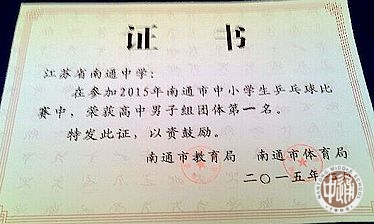 证书
江苏省南通中学：
在参加2015年南通市中小学生乒乓球比
赛中，荣获高中男子组团体第一名。
特发此证，以资鼓励。
南通市教育局 南通市体育局
二〇一五年